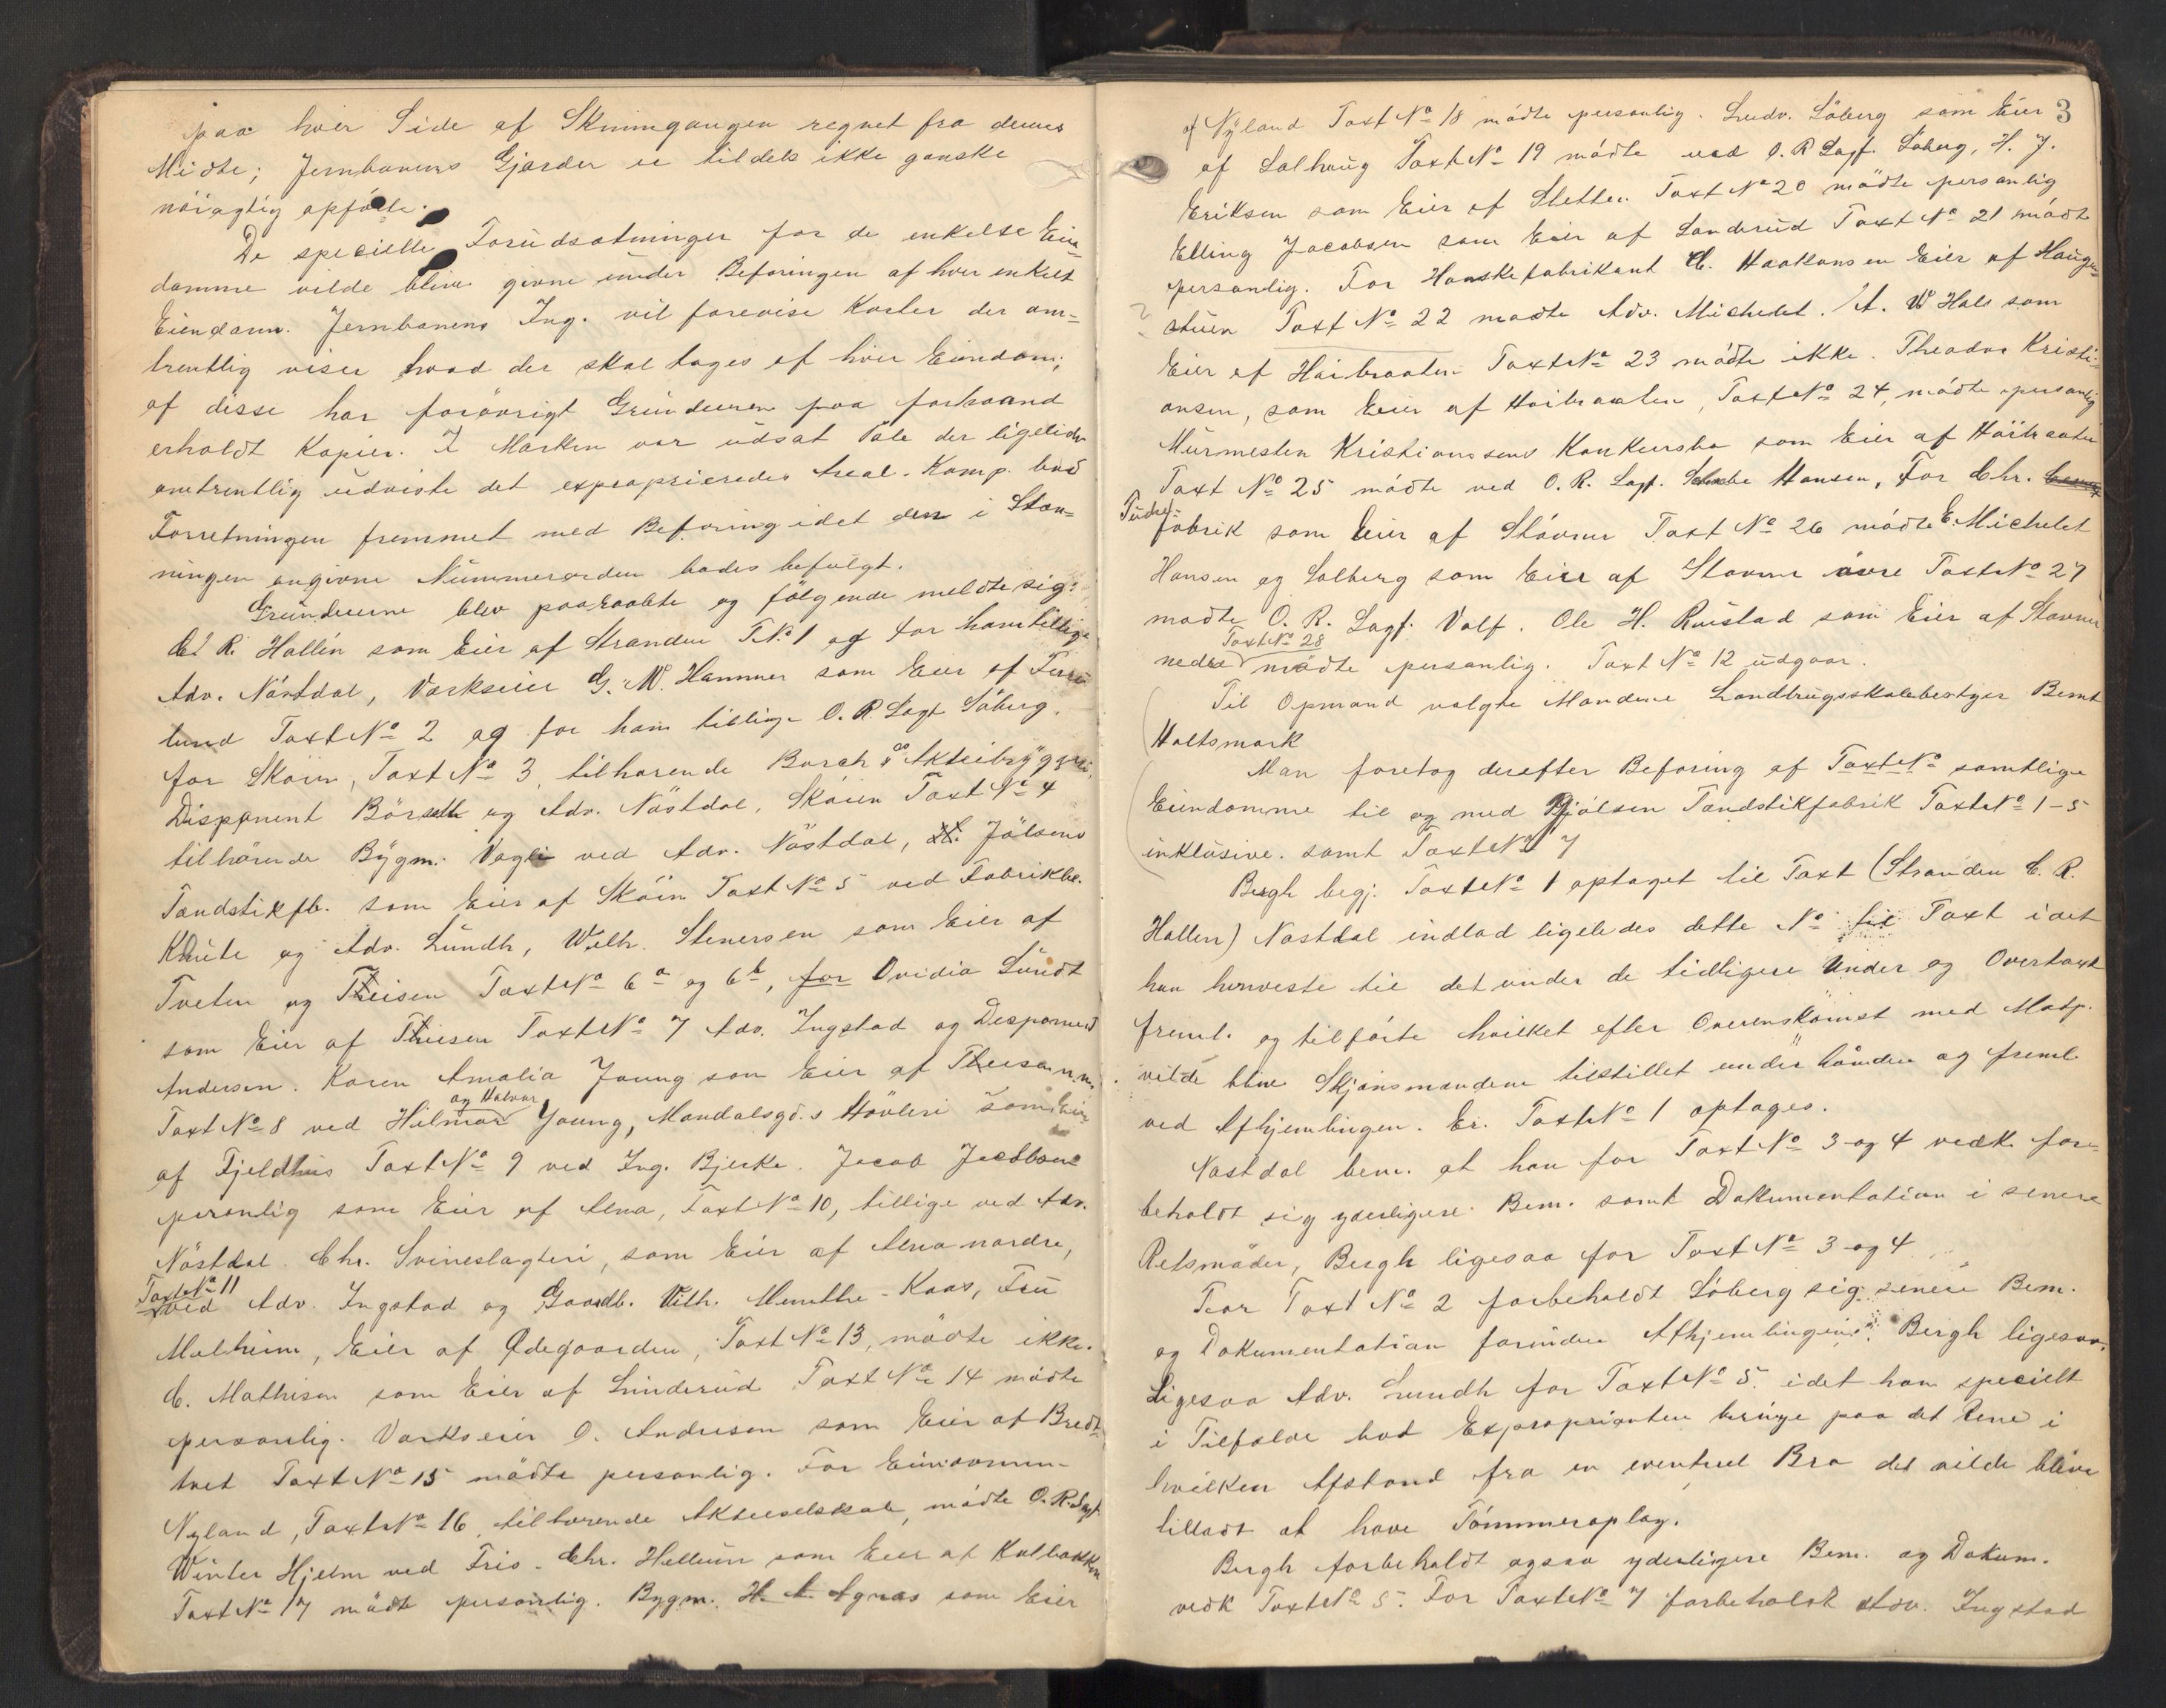 paa hver Side af Skinnegangen regnet fra dennes
Midte; Jernbanens Gjærder er tildels ikke ganske
nöiagtig opförte.
De specielle Forudsætninger for de enkelte Eien-
domme vilde blive givne under Befaringen af hver enkelt
Eiendom. Jernbanens Ing. vil forevise Karter der om-
trentlig viser hvad der skal tages af hver Eiendom;
af disse har forövrigt Grundeierne paa forhaand
erholdt Kopier. I Marken var udsat Pæle der ligeledes
omtrentlig udviste det exproprieredes Areal. Komp. bad
Forretningen fremmet med Befaring idet den i Stæv-
ningen angivne Nummerorden bades befulgt.
Grundeierne blev paaraabte og fölgende meldte sig:
C. R. Hallén som Eier af Stranden T.No 1 og for ham tillige
Adv. Nöstdal, Værkseier G. M. Hammer som Eier af Furu
lund Taxt No 2 og for ham tillige O. R. Sagf Söberg.
for Sköien, Taxt No 3, tilhørende Borch's Aktiebryggeri,
Disponent Börseth og Adv. Nöstdal, Sköien Taxt No 4
tilhörende Bygm. Vagli ved Adv. Nöstdal, Jölsens
Tændstikfb. som Eier af Sköien Taxt No 5 ved Fabrikbe.
Knute og Adv. Lundh, Wilh. Stenersen som Eier af
Tveten og Theisen Taxt No 6a og 6b, for Ovidia Lundt
som Eier af Theisen Taxt No 7 Adv. Ingstad og Desponent
Andersen. Karen Amalia Young som Eier af Theisen
Taxt No 8 ved Hilmar og Halvar Young, Mandalsgd.s Hövleri som Eier
af Fjeldhus Taxt No 9 ved Ing. Bjerke. Jacob Jacobsen
personlig som Eier af Alna, Taxt No 10, tillige ved Adv.
Nöstdal. Chr. Svineslagteri, som Eier af Alna nordre,
Taxt No 11
ved Adv. Ingstad og Gaardb. Vilh. Munthe-Kaas, Fru
Malheim, Eier af Ødegaarden, Taxt No 13, mødte ikke.
C. Mathisen som Eier af Linderud Taxt No 14 mödte
personlig. Værkseier O. Andresen som Eier af Bredt-
vet Taxt No 15 mödte personlig. For Eiendommen
Nyland, Taxt No 16, tilhørende Aktieselskab, mödte O.R.Sagf.
Winter Hjelm ved Friis. Chr. Hellum som Eier af Kalbakken
Taxt No 17 mödte personlig. Bygm. H. A. Agnæs som Eier
3
af Nyland Taxt No 18 mödte personlig. Ludv. Söberg som Eier
af Solhaug Taxt No 19 mödte ved O. R Sagf. Söberg, H. J.
Eriksen som Eier af Sletten Taxt No 20 mödte personlig
Elling Jacobsen som Eier af Landerud Taxt No 21 mödte
personlig. For Hanskefabrikant C. Haakonsen Eier af Hauger-
stuen Taxt No 22 mødte Adv. Michelet. A. W Hals som
Eier af Höibraaten Taxt No 23 mödte ikke. Theodor Kristi-
ansen, som Eier af Höibraaten, Taxt No 24, mödte personlig
Murmester Kristianssens Konkursbo som Eier af Höibraaten
Taxt No 25 mödte ved O. R. Sagf. Hansen, For Chr.
Tændst-
fabrik som Eier af Stövner Taxt No 26 mödte E. Michelet
Hansen og Solberg som Eiere af Stovner övre Taxt No 27
mødte O. R. Sagf. Volf. Ole H. Rustad som Eier af Stovner
Taxt No 28
nedre mødte personlig. Taxt No 12 udgaar.
Til Opmand valgte Mændene Landbrugsskolebestyrer Bernt
Holtsmark
Man foretog derefter Befaring af Taxt No samtlige
Eiendomme til og med Jölsen Tændstikfabrik Taxt No 1–5
inklusive. samt Taxt No 7
Bergh begj. Taxt No 1 optaget til Taxt (Stranden C. R.
Hallen) Nøstdal indlod ligeledes dette No til Taxt idet
han henviste til det under de tidligere Under og Overtaxt
freml. og tilförte hvilket efter Overenskomst med Modp.
vilde blive Skjönsmændene tilstillet under hånden og freml
ved Afhjemlingen. Er. Taxt No 1 optages.
Nøstdal bem. at han for Taxt No 3 og 4 vedk. fore-
beholdt sig yderligere Bem. samt Dokumentation i senere
Retsmøder, Bergh ligesaa for Taxt No 3 og 4.
For Taxt No 2 forbeholdt Söberg sig senere Bem.
og Dokumentation forinden Afhjemlingen, Bergh ligesaa,
Ligesaa Adv. Lundh for Taxt No 5. idet han specielt
i Tilfælde bad Exproprianten bringe paa det Rene i
hvilken Afstand fra en eventuel Bro det vilde blive
tilladt at have Tömmeroplag.
Bergh forbeholdt ogsaa yderligere Bem. og Dokum.
vedk Taxt No 5. For Taxt No 7 forbeholdt Adv. Ingstad